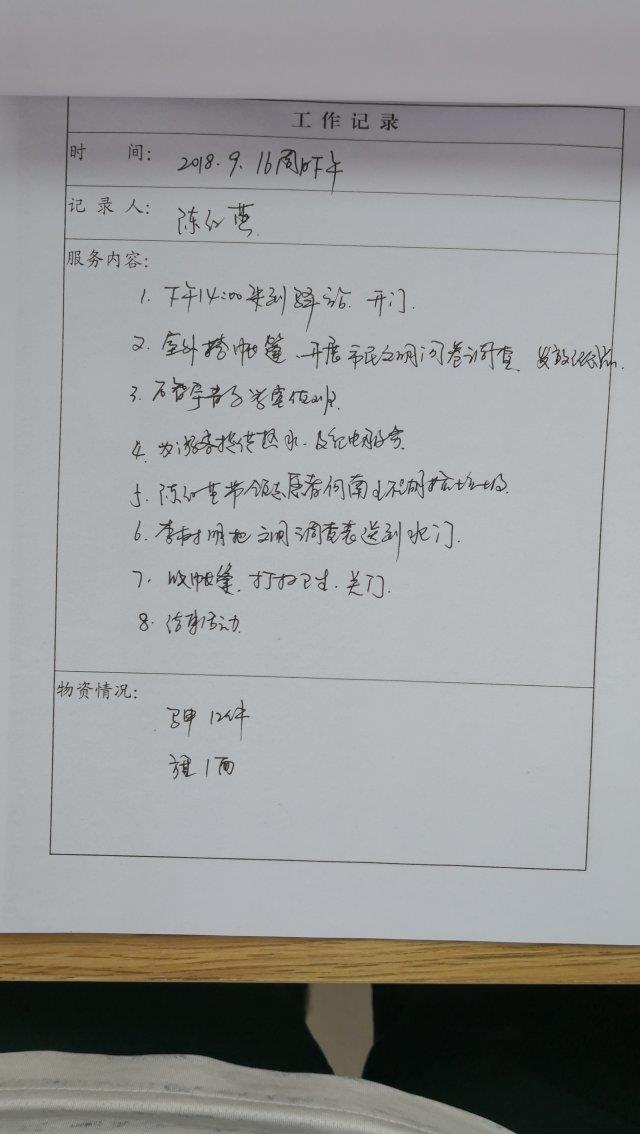 工作记录
时 间: 2018.9.16周日下午
记录人: 陈红英
服务内容:
1. 下午14:00来到驿站.开门.
2. 室外搭帐篷.开展市民文明问卷调查.发放纪念品.
3. 值班
4. 为游客提供热水.及充电服务
5. 陈红英带领志愿者何南 捡垃圾.
6. 李树明把文明调查表送到水门.
7. 收帐篷.打扫卫生.关门.
8. 结束活动
物资情况:
马甲12件
旗1面